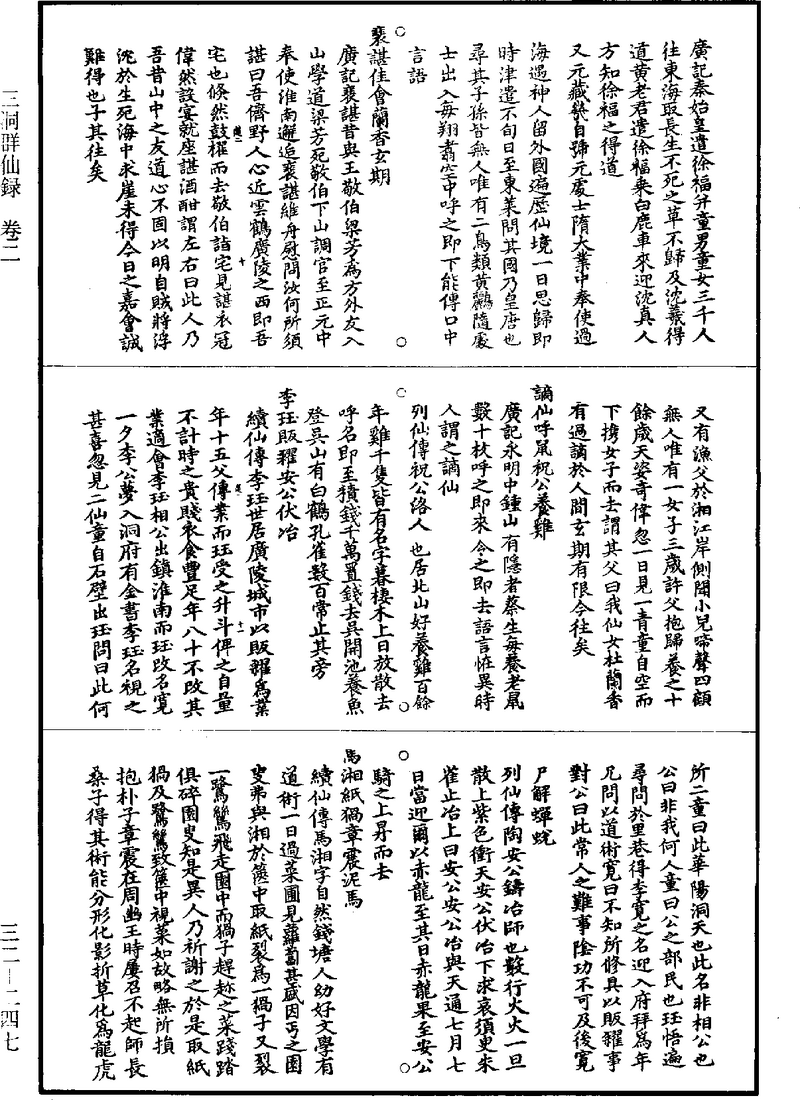 三洞群仙録　卷二
三二—二四七
廣記秦始皇遣徐福并童男童女三千人
往東海取長生不死之草不歸及沈羲得
道黄老君遣徐福乗白鹿車來迎沈真人
方知徐福之得道
又元藏幾自號元處士隋大業中奉使過
海遇神人留外國遍歷仙境一日思歸即
時津遣不旬日至東萊問其國乃皇唐也
尋其子孫皆無人唯有二鳥類黄鸝隨處
士出入每翔翥空中呼之即下能傳口中
言語
裴諶佳會蘭香玄期
廣記裴諶昔與王敬伯梁芳爲方外友入
山學道梁芳死敬伯下山調官至正元中
奉使淮南邂逅裴諶維舟慰問汝何所須
諶曰吾儕野人心近雲鶴廣陵之西即吾
宅也倏然鼓櫂而去敬伯詣宅見諶衣冠
偉然設宴就座諶酒酣謂左右曰此人乃
吾昔山中之友道心不固以明自賊將浮
沈於生死海中求崖未得今日之嘉會誠
難得也子其往矣
又有漁父於湘江岸側聞小兒啼聲四顧
無人唯有一女子三歲許父抱歸養之十
餘歲天姿奇偉忽一日見一青童自空而
下携女子而去謂其父曰我仙女杜蘭香
有過謫於人間玄期有限今往矣
謫仙呼鼠祝公養雞
廣記永明中鍾山有隱者蔡生每養老鼠
數十枚呼之即來令之即去語言恠異時
人謂之謫仙
列仙傳祝公洛人也居北山好養雞百餘
年雞千隻皆有名字暮棲木上日放散去
呼名即至積錢千萬置錢去吳開池養魚
登吳山有白鶴孔雀數百常止其旁
李珏販糴安公伏冶
續仙傳李珏世居廣陵城市以販糴爲業
年十五父傳業而珏受之升斗俾之自量
不計時之貴賤衣食豐足年八十不改其
業適會李珏相公出鎮淮南而珏改名寬
一夕李公夢入洞府有金書李珏名視之
甚喜忽見二仙童自石壁出珏問曰此何
所二童曰此華陽洞天也此名非相公也
公曰非我何人童曰公之部民也珏悟遍
尋問於里巷得李寬之名迎入府拜爲年
兄問以道術寬曰不知所修具以販糴事
對公曰此常人之難事陰功不可及後寬
尸解蟬蛻
列仙傳陶安公鑄冶師也數行火火一旦
散上紫色衝天安公伏冶下求哀須臾朱
雀止冶上曰安公安公冶與天通七月七
日當迎爾以赤龍至其日赤龍果至安公
騎之上昇而去
馬湘紙猧章震泥馬
續仙傳馬湘字自然錢塘人幼好文學有
道術一日過菜圃見蘿蔔甚盛因丐之園
叟弟與湘於篋中取紙裂爲一猧子又裂
一鷺鷥飛走園中而猧子趕趂之菜踐踏
俱碎園叟知是異人乃祈謝之於是取紙
猧及鷺鷥致篋中視菜如故略無所損
抱朴子章震在周幽王時屢召不起師長
桑子得其術能分形化影折草化爲龍虎